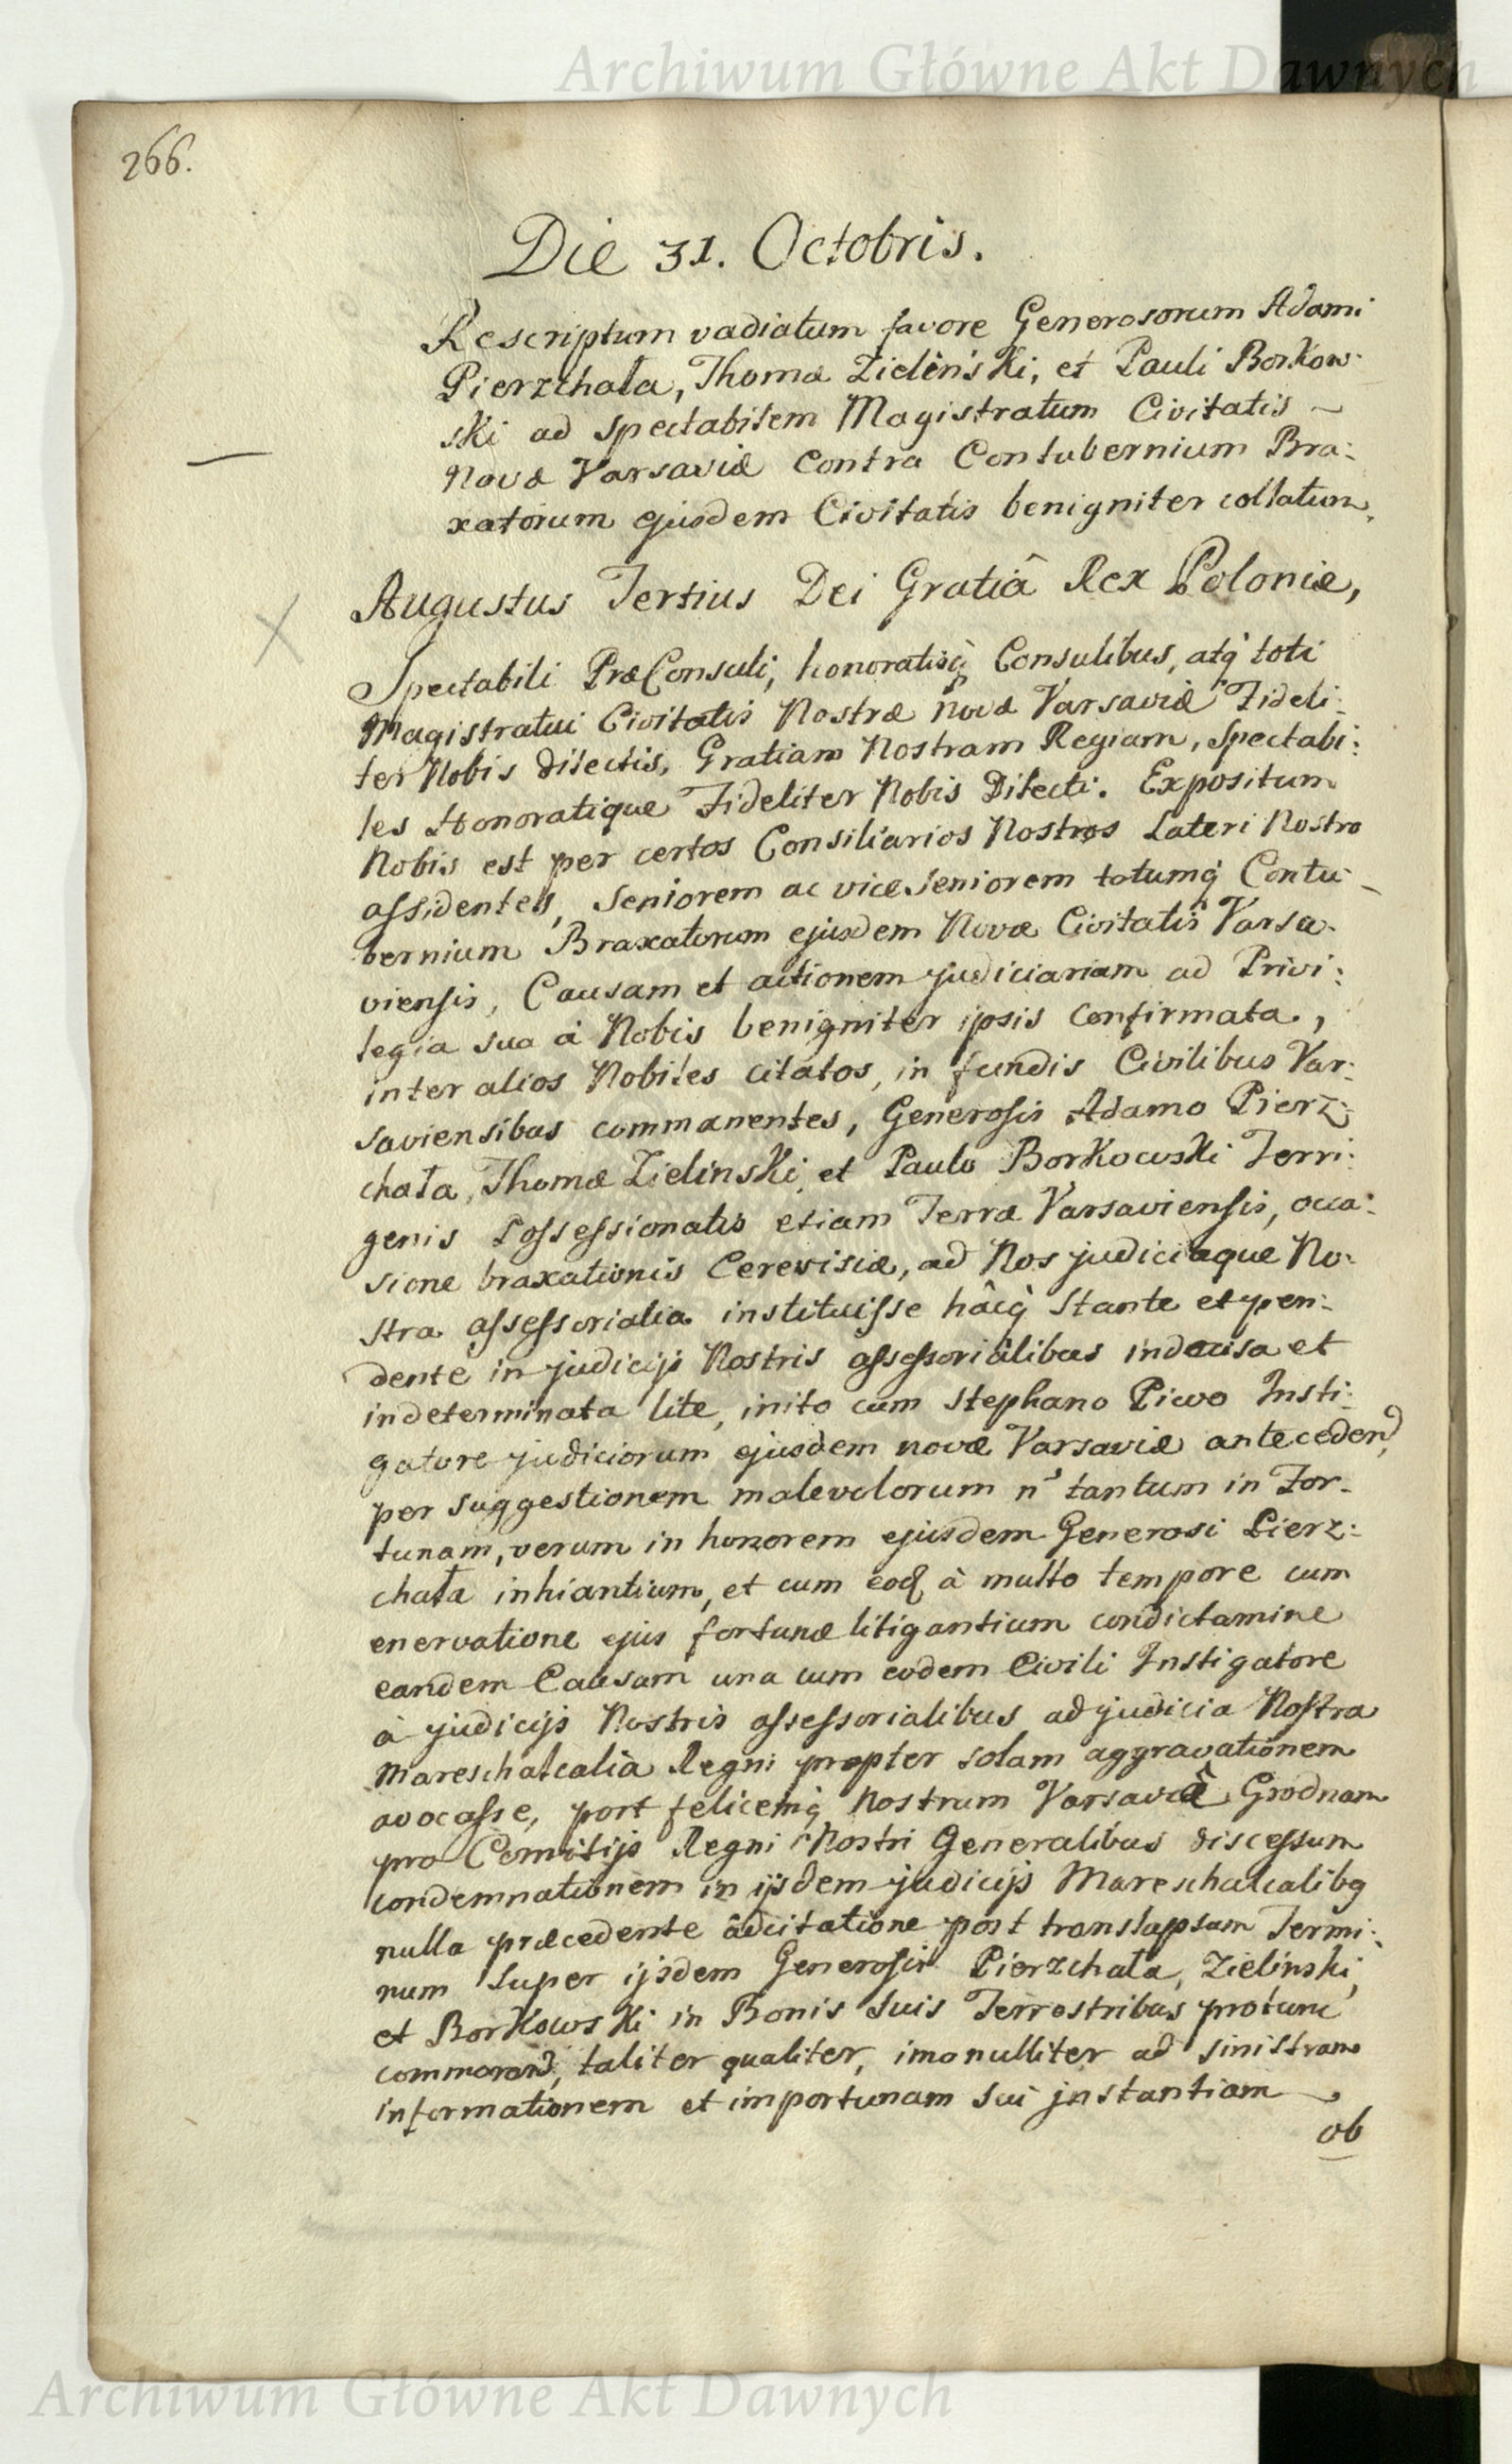 Archiwum Główne Akt Dawnych
266.
Die 31. Octobris.
Rescriptum vadiatum favore Generosorum Adami
Pierzchała, Thomæ Zielinski, et Pauli Borkow-
ski ad spectabilem Magistratum Civitatis –
Novæ Varsaviæ contra Contubernium Bra:
xatorum ejusdem Civitatis benigniter collatum.
Augustus Tertius Dei Gratiâ Rex Poloniæ,
Spectabili PræConsuli, honoratisq́ Consulibus, atq́ toti
Magistratui Civitatis Nostræ Novæ Varsaviæ Fideli:
ter Nobis dilectis, Gratiam Nostram Regiam, Spectabi:
les Honoratique Fideliter Nobis Dilecti. Expositum
Nobis est per certos Consiliarios Nostros Lateri Nostro
assidentes, Seniorem ac vice Seniorem totumq́ Contu –
bernium Braxatorum ejusdem Novæ Civitatis Varsa-
viensis, Causam et actionem judiciariam ad Privi:
legia sua à Nobis benigniter ipsis confirmata,
inter alios Nobiles citatos, in fundis Civilibus Var:
saviensibus commanentes, Generosis Adamo Pierz:
chała, Thomæ Zielinski et Paulo Borkowski Terri:
genis Possessionatis etiam Terræ Varsaviensis, occa:
sione braxationis Cerevisiæ, ad Nos judiciaque No:
stra assessorialia instituisse hâcq́ stante et pen:
dente in judicijs Nostris assessorialibus indecisa et
indeterminata lite, inito cum Stephano Piwo Insti:
gatore judiciorum ejusdem novæ Varsaviæ anteceden̄,
per suggestionem malevolorum n̄ tantum in For-
tunam, verum in honorem ejusdem Generosi Pierz:
chała inhiantium, et cum eoq́ à multo tempore cum
enervatione ejus fortunæ litigantium condictamine
eandem Causam una cum eodem Civili Instigatore
à judicijs Nostris assessorialibus ad judicia Nostra
Mareschalcalia Regni propter solam aggravationem
avocasse, post felicemq́ Nostrum Varsaviâ Grodnam
pro Comitijs Regni Nostri Generalibus discessum
condemnationem in ijsdem judicijs Mareschalcalibq
nulla præcedente âdcitatione post translapsum Termi:
num super ijsdem Generosis Pierzchała, Zielinski,
et Borkowski in Bonis suis Terrestribus protunc
commoran̄, taliter qualiter, imo nulliter ad sinistram
informationem et importunam sui instantiam –
ob
Archiwum Główne Akt Dawnych